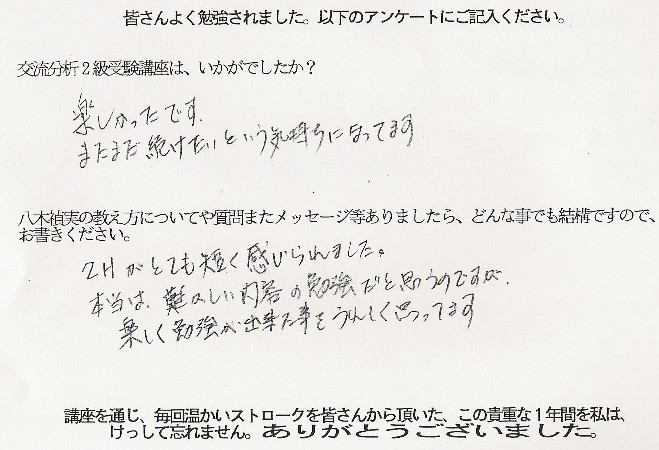 皆さんよく勉強されました。以下のアンケートにご記入ください。
交流分析2級受験講座は、いかがでしたか?
楽しかったです.
まだまだ続けたいという気持ちになってます
八木禎実の教え方についてや質問またメッセージ等ありましたら、どんな事でも結構ですので、
お書きください。
2Hがとても短く感じられました。
本当は、難かしい内容の勉強だと思うのですが、
楽しく勉強が出来た事をうれしく思ってます
講座を通じ、毎回温かいストロークを皆さんから頂いた、この貴重な1年間を私は、
けっして忘れません。ありがとうございました。